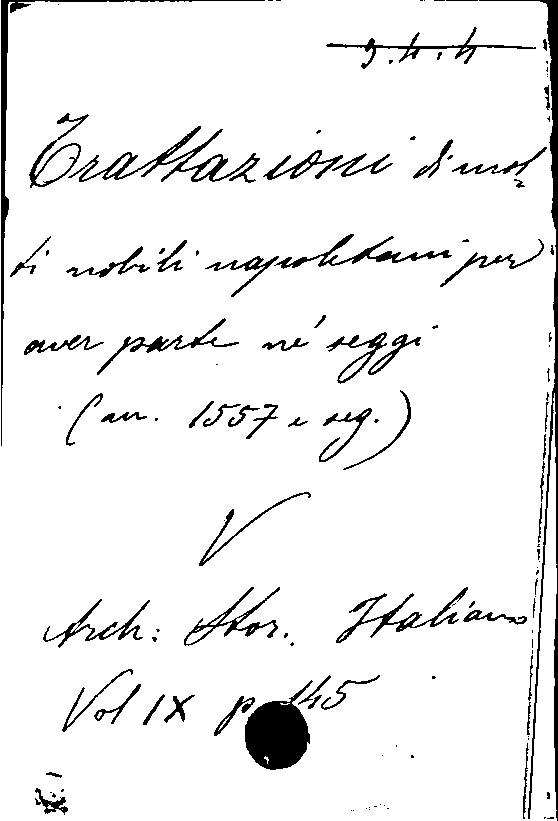 9.4.4
Trattazioni di mol-
ti nobili napoletani per
aver parte né seggi
(an. 1557 e seg.)
V
Arch: Stor. Italiano
Vol IX p. 145